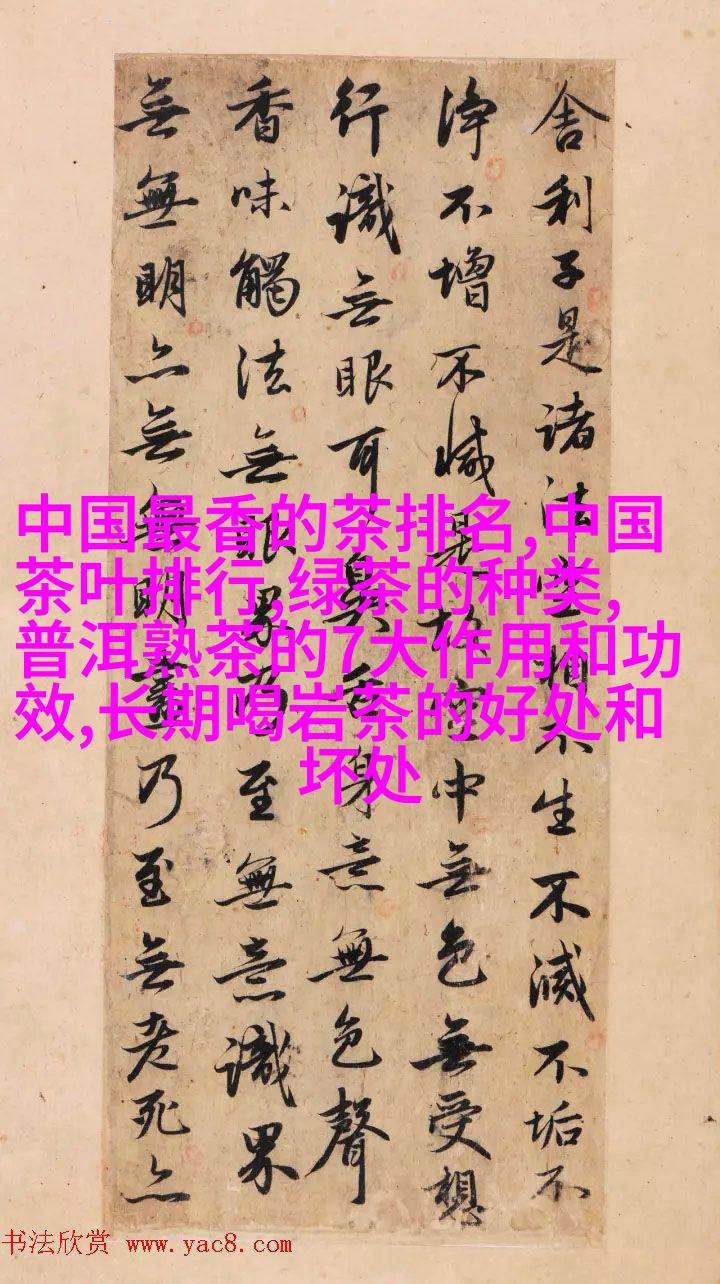 舍利子是諸法空相不生不滅不垢不
淨不增不減是故空中無色無受想
行識無眼耳鼻舌身意無色聲
香味觸法無眼界乃至無意識界
無無明亦無無明盡乃至無老死亦
中国最香的茶排名,中国
茶叶排行,绿茶的种类,
普洱熟茶的7大作用和功
效,长期喝岩茶的好处和
坏处
书法欣赏 www.yac8.com